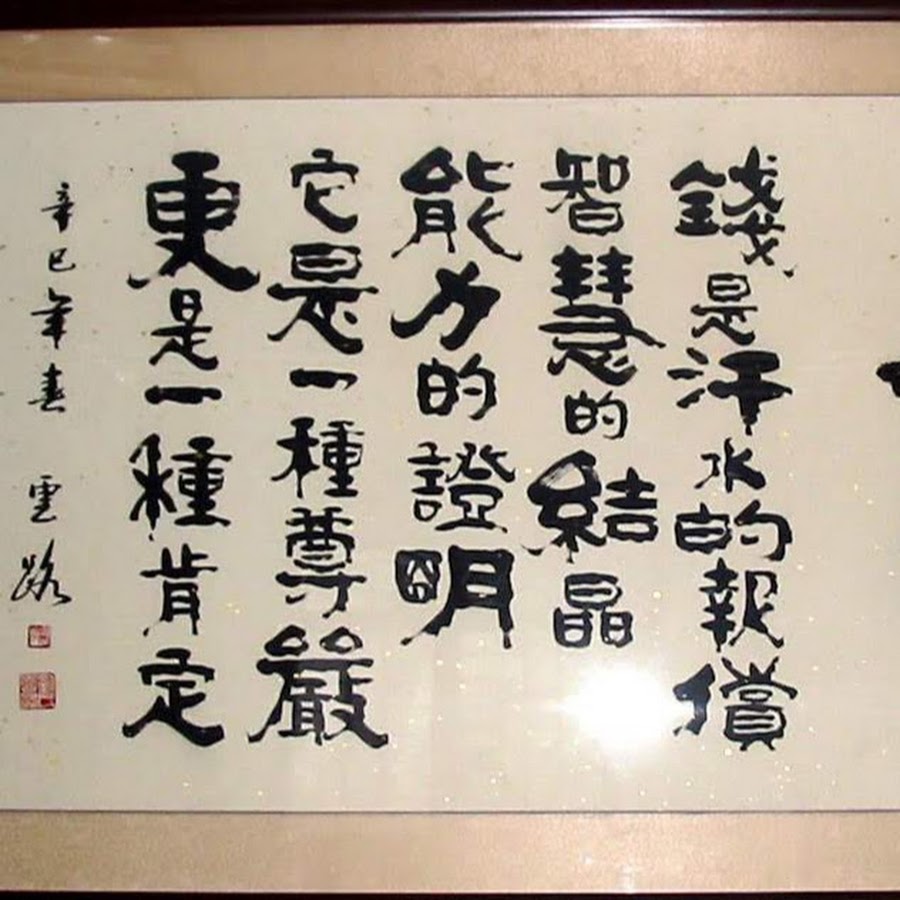 錢是汗水的報償
智慧的結晶
能力的證明
它是一種尊嚴
更是一種肯定
辛巳年春 雲路